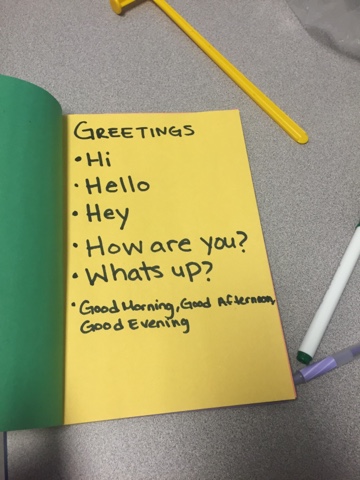 GREETINGS
• Hi
• Hello
• Hey
• How are you?
• Whats up?
• Good Morning, Good Afternoon,
Good Evening